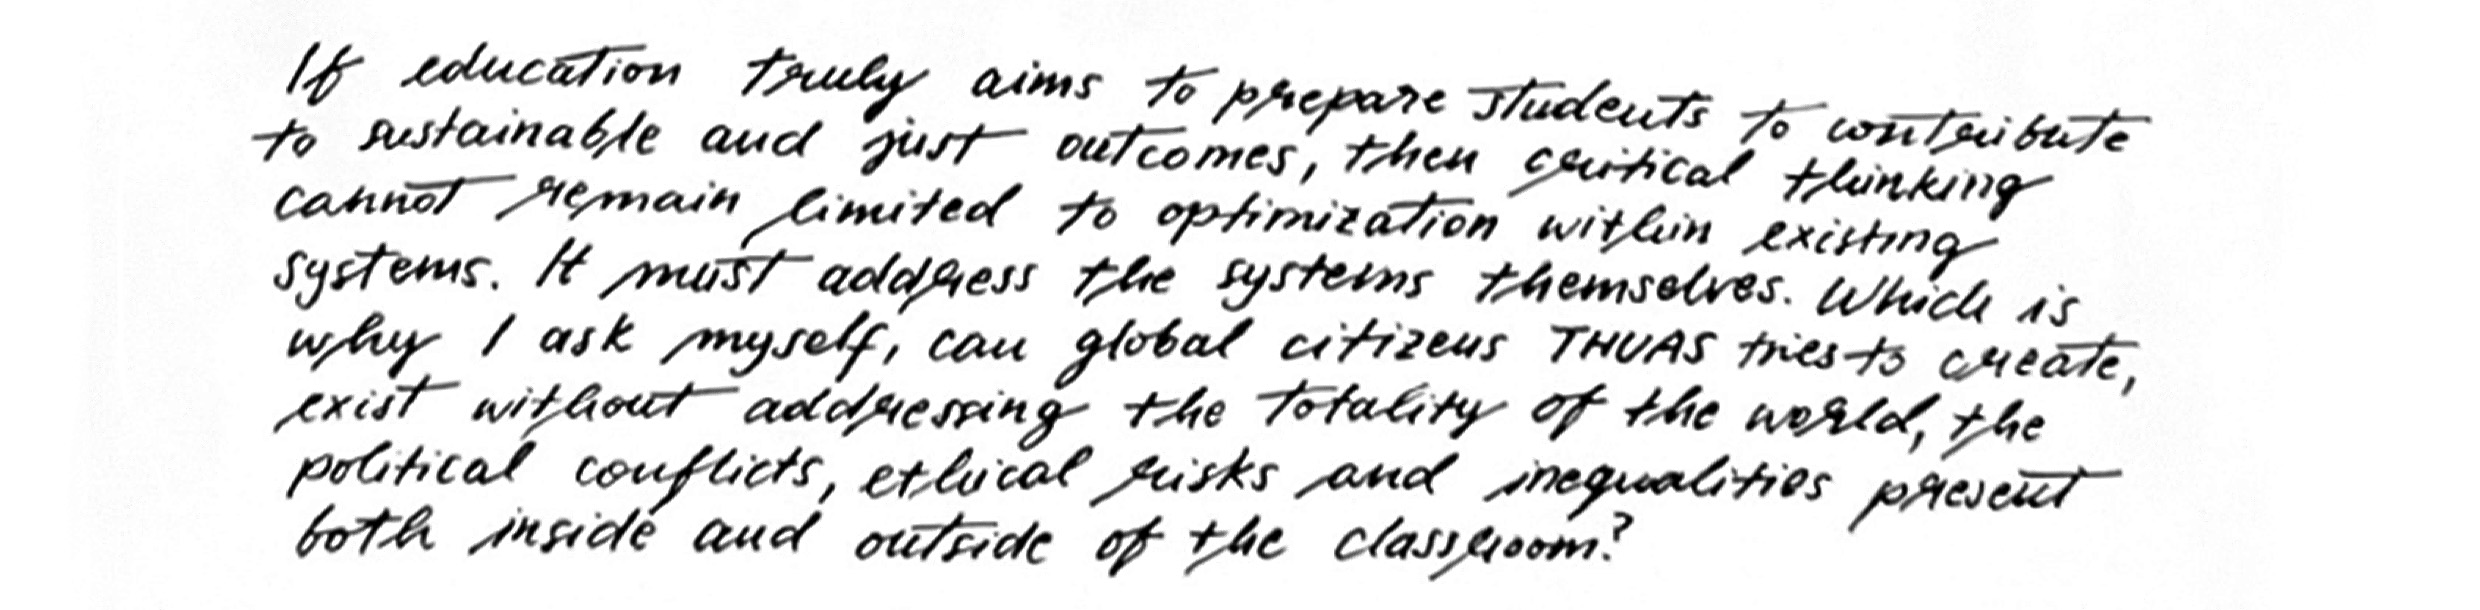 If education truly aims to prepare students to contribute
to sustainable and just outcomes, then critical thinking
cannot remain limited to optimization within existing
systems. It must address the systems themselves. Which is
why I ask myself, can global citizens THUAS tries to create,
exist without addressing the totality of the world, the
political conflicts, ethical risks and inequalities present
both inside and outside of the classroom?